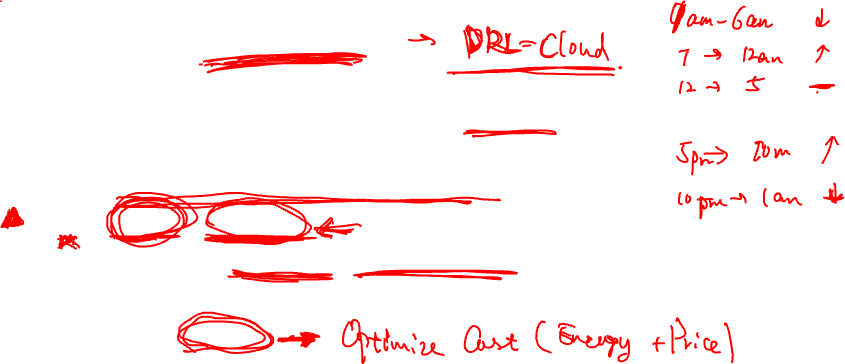 → DRL=Cloud
1am-6am ↓
7 → 12am ↑
12 → 5 -
5pm → 10m ↑
10pm → 1am ↓
→ Optimize Cost (Energy + Price)